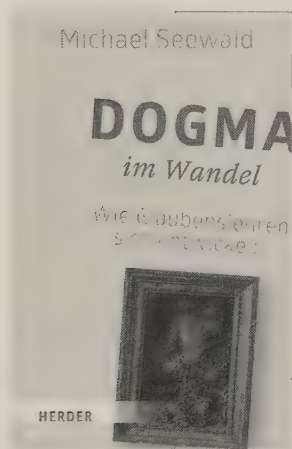 Michael Seewald
DOGMA
im Wandel
Wie Glaubenslehren
HERDER